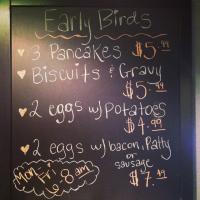 Early Birds
3 Pancakes $5.99
Biscuits & Gravy
$5.99
2 eggs w/ Potatoes
$4.99
2 eggs w/ bacon, Patty
or
sausage
$7.49
Mon
Fri
8 am